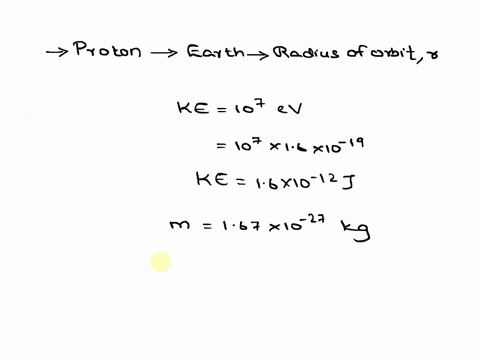 → Proton → Earth → Radius of orbit, r
KE = 10⁷ eV
= 10⁷ × 1.6 × 10⁻¹⁹
KE = 1.6 × 10⁻¹² J
m = 1.67 × 10⁻²⁷ kg